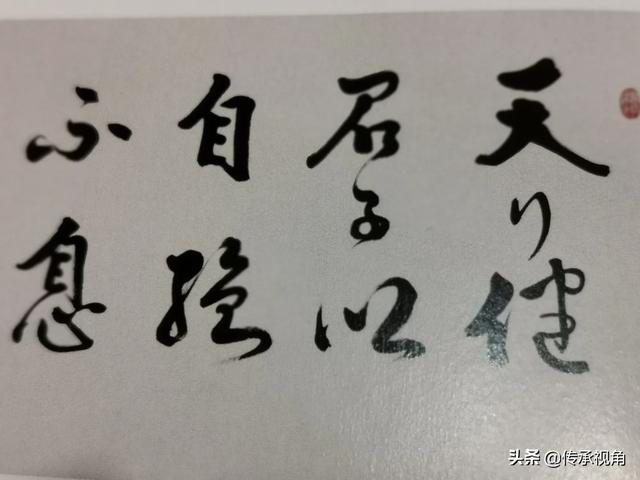 天行健
君子以
自强
不息
头条 @传承视角